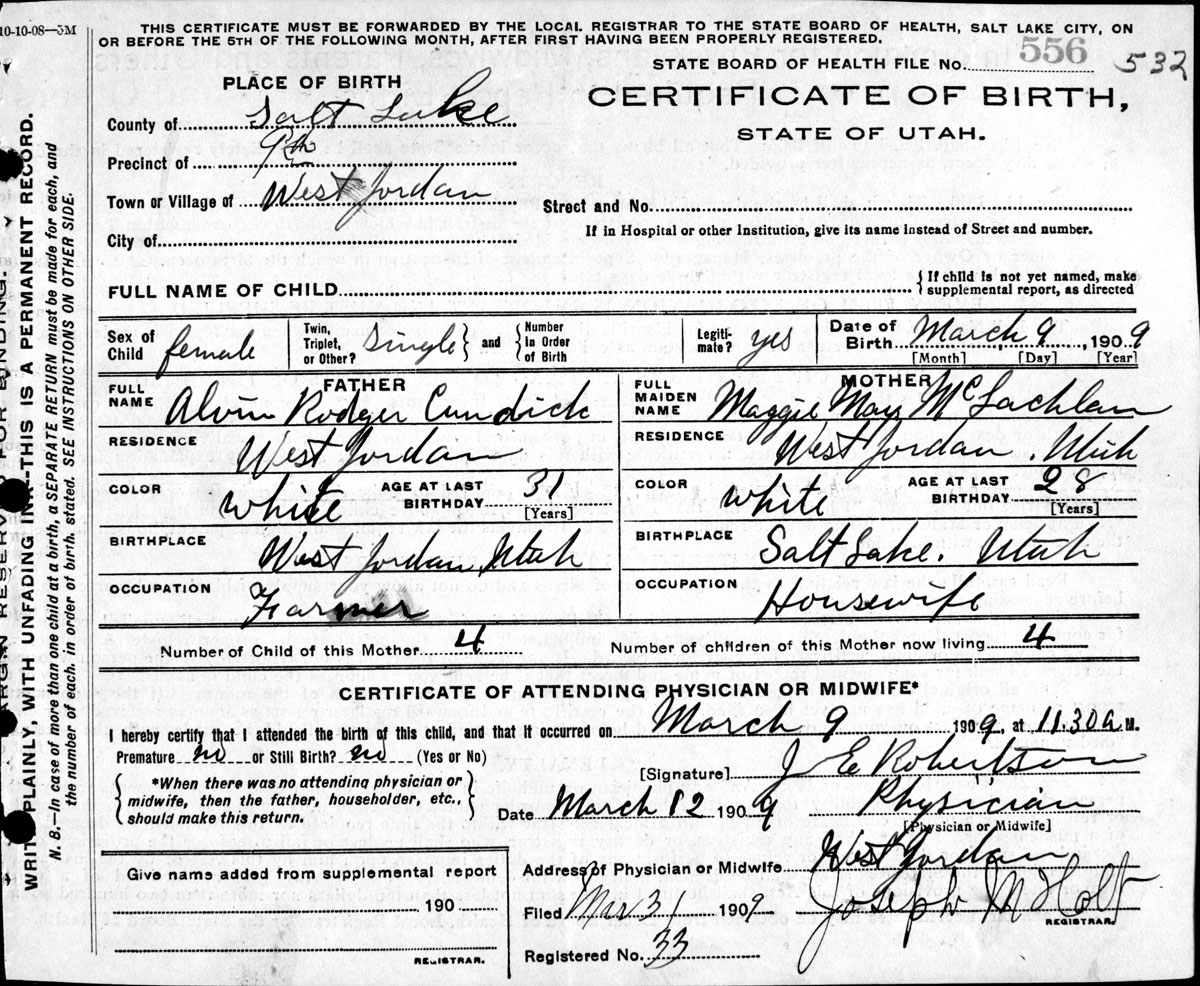 10-10-08—5M
THIS CERTIFICATE MUST BE FORWARDED BY THE LOCAL REGISTRAR TO THE STATE BOARD OF HEALTH, SALT LAKE CITY, ON
OR BEFORE THE 5TH OF THE FOLLOWING MONTH, AFTER FIRST HAVING BEEN PROPERLY REGISTERED.
STATE BOARD OF HEALTH FILE NO. 556 532
PLACE OF BIRTH
CERTIFICATE OF BIRTH,
STATE OF UTAH.
County of Salt Lake
Precinct of 9th
Town or Village of West Jordan
Street and No.
City of
If in Hospital or other Institution, give its name instead of Street and number.
FULL NAME OF CHILD { If child is not yet named, make
supplemental report, as directed
Sex of Child female Twin, Triplet, or Other? Single } and { Number In Order of Birth Legiti-mate? yes Date of Birth March 9, 1909
[Month] [Day] [Year]
FATHER MOTHER
FULL NAME Alvin Rodger Cundick FULL MAIDEN NAME Maggie May McLachlan
RESIDENCE West Jordan RESIDENCE West Jordan. Utah
COLOR white AGE AT LAST BIRTHDAY 31 [Years] COLOR white AGE AT LAST BIRTHDAY 28 [Years]
BIRTHPLACE West Jordan, Utah BIRTHPLACE Salt Lake. Utah
OCCUPATION Farmer OCCUPATION Housewife
Number of Child of this Mother 4 Number of children of this Mother now living 4
CERTIFICATE OF ATTENDING PHYSICIAN OR MIDWIFE*
I hereby certify that I attended the birth of this child, and that it occurred on March 9 1909, at 11.30 a M.
Premature no or Still Birth? no (Yes or No)
[Signature] J E Robertson
{ *When there was no attending physician or
midwife, then the father, householder, etc.,
should make this return. }
Date March 12 1909 Physician
[Physician or Midwife]
Give name added from supplemental report
190
REGISTRAR.
Address of Physician or Midwife West Jordan
Filed Mar 31 1909 Joseph M Holt
REGISTRAR.
Registered No. 33
WRITE PLAINLY, WITH UNFADING INK--THIS IS A PERMANENT RECORD.
N. B. In case of more than one child at a birth, a SEPARATE RETURN must be made for each, and
the number of each, in order of birth, stated. SEE INSTRUCTIONS ON OTHER SIDE.